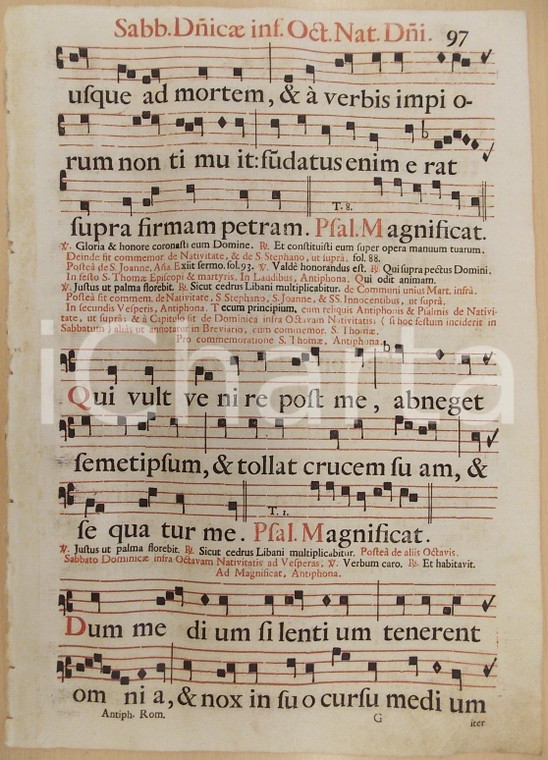 Sabb. Dñicæ inf. Oct. Nat. Dñi. 97
usque ad mortem, & à verbis impi o-
rum non ti mu it: fũdatus enim e rat
T. 8.
supra firmam petram. Psal. Magnificat.
℣. Gloria & honore coronasti eum Domine. ℟. Et constituisti eum super opera manuum tuarum.
Deinde fit commemor. de Nativitate, & de S. Stephano, ut suprà, fol. 88.
Posteà de S. Joanne, Aña Exiit sermo. fol. 93. ℣. Valdè honorandus est. ℟. Qui supra pectus Domini.
In festo S. Thomæ Episcopi & martyris, In Laudibus, Antiphona. Qui odit animam.
℣. Justus ut palma florebit. ℟. Sicut cedrus Libani multiplicabitur. de Communi unius Mart. infrà.
Posteà fit commem. de Nativitate, S. Stephano, S. Joanne, & SS. Innocentibus, ut suprà.
In secundis Vesperis, Antiphona. Tecum principium, cum reliquis Antiphonis & Psalmis de Nativi-
tate, ut suprà: & à Capitulo fit de Dominica infra Octavam Nativitatis (si hoc festum inciderit in
Sabbatum) aliàs ut annotatur in Breviario, cum commemor. S. Thomæ.
Pro commemoratione S. Thomæ, Antiphona.
iCharta
Qui vult ve ni re post me, abneget
semetipsum, & tollat crucem su am, &
T. 1.
se qua tur me. Psal. Magnificat.
℣. Justus ut palma florebit. ℟. Sicut cedrus Libani multiplicabitur. Posteà de aliis Octavis.
Sabbato Dominicæ infra Octavam Nativitatis ad Vesperas, ℣. Verbum caro. ℟. Et habitavit.
Ad Magnificat, Antiphona.
Dum me di um si lenti um tenerent
om ni a, & nox in su o cursu medi um
Antiph. Rom. G iter